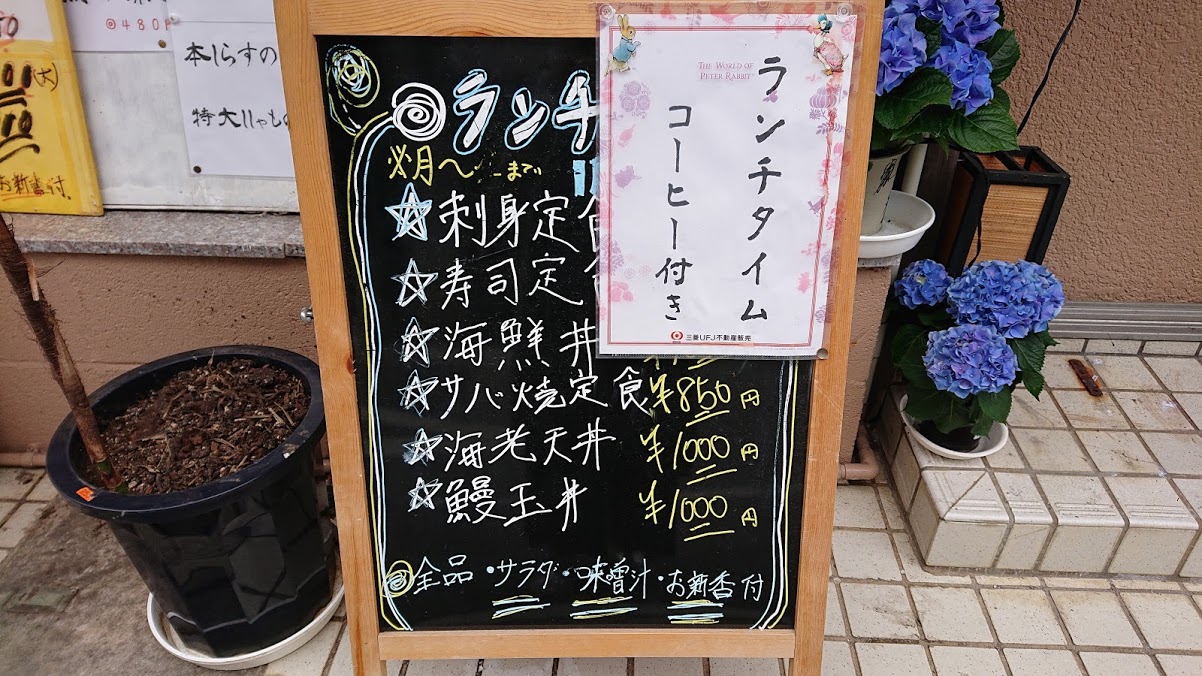 ◎480円
本しらすの
特大いゃもの
お新香付
ランチ
月〜 まで
☆刺身定食
☆寿司定食
☆海鮮丼
☆サバ焼定食 ¥850円
☆海老天丼 ¥1000円
☆鰻玉丼 ¥1000円
◎全品・サラダ・味噌汁・お新香付
THE WORLD OF
PETER RABBIT
ランチタイム
コーヒー付き
三菱UFJ不動産販売